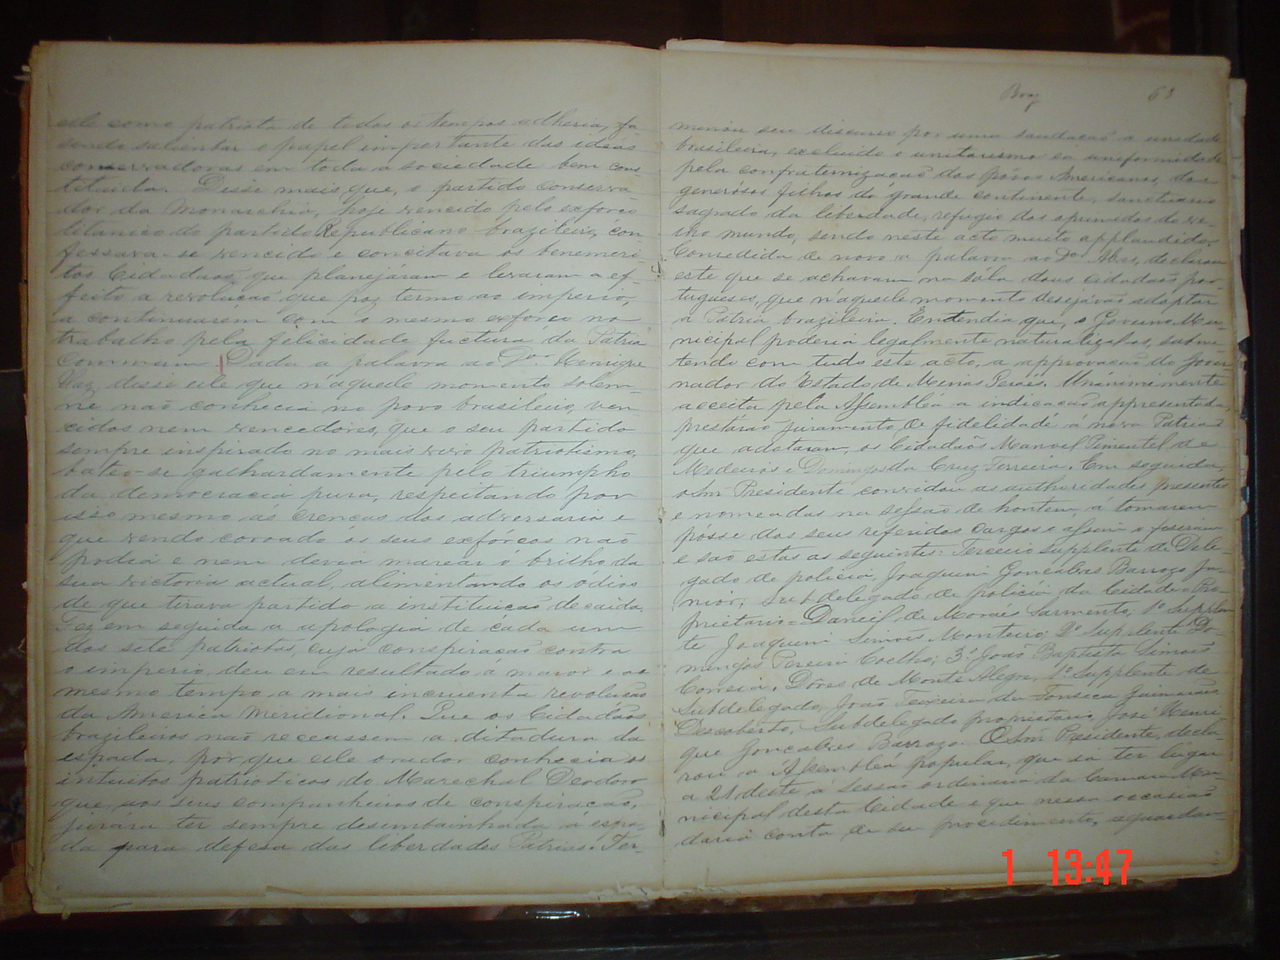 elle como patriota de todos os tempos adheria, fa-
sendo salientar o papel importante das ideas
conservadoras em toda a sociedade bem cons
tituida. Disse mais que, o partido conserva
dor da Monarchia, hoje vencido pelo exforço
titanico do partido Republicano brazileiro, con
fessava-se vencido e concitava os benemeri
tos Cidadãos, que planejáram e levaram a ef-
feito a revolução que poz termo ao imperio,
a continuarem com o mesmo exforço no
trabalho pela felicidade factura da Patria
Commum. Dada a palavra ao Dor Henrique
Vaz, disse elle que n'aquelle momento solem-
ne não conhecia no povo brasileiro, ven
cidos nem vencedores, que o seu partido
sempre inspirado no mais vivo patriotismo,
bateo-se galhardamente pelo triumpho
da democracia pura, respeitando por
isso mesmo ás crenças dos adversarios e
que vendo coroado os seus exforços não
podia e nem devia marear o brilho da
sua victoria actual, alimentando os odios
de que tirava partido a instituição decaida.
Fez em seguida a apologia de cada um
dos sete patriotas, cuja conspiração contra
o imperio deu em resultado a maior e ao
mesmo tempo a mais incruenta revolução
da America Meridional. Que os Cidadãos
brazileiros não receassem a ditadura da
espada, por que elle orador conhecia os
intuitos patrioticos do Marechal Deodoro
que, aos seus companheiros de conspiração,
jurára ter sempre desembainhada a espa-
da para defesa das liberdades Patrias. Ter-
63
minou seu discurso por uma saudação a unedade
brasileira, excluido o unitarismo ou uneformidade
pela confraternização dos póvos Americanos, dos
generosos filhos do grande continente, sanctuario
sagrado da liberdade, refugio dos oprimidos do ve-
lho mundo, sendo neste acto muito applaudido.
Concedida de novo a palavra ao Dor declarou
este que se achavam na sala dous cidadãos por-
tugueses, que n'aquelle momento desejavão adoptar
a Patria brazileira. Entendia que, o Governo Mu-
nicipal poderia legalmente naturalizal-os, subme
tendo com tudo este acto, a approvação do Gover
nador do Estado de Minas Geraes. Unánimimente
acceita pela Assembléa a indicação appresentada,
prestárão juramento de fidelidade a nova Patria
que adotavam, os Cidadãos Manoel Pimentel de
Medeiros e Domingos da Cruz Ferreira. Em seguida,
o Snr Presidente convidou as authoridades presentes
e nomeadas na sessão de hontem, á tomarem
pósse dos seus referidos Cargos e assim o fiseram
e são estas as seguintes: Terceiro supplente de Dele-
gado de policia, Joaquim Gonçalves Barrozo Ju-
nior; Subdelegado de policia da Cidade - Pro-
prietario - Daniel de Moraes Sarmento, 1º Supplen-
te Joaquim Simões Monteiro; 2º Suplente Do-
mingos Pereira Coelho; 3º João Baptista Simões
Correia. Dôres de Monte Alegre, 1º Supplente de
Subdelegado, João Teixeira da Fonseca Guimarães
Descoberto, Subdelegado proprietario, José Henri
que Gonçalves Barrozo. O Snr Presidente, decla
rou a Assemblea popular, que ia ter lugar
a 21 deste a sessão ordinaria da Camara Mu-
nicipal desta Cidade e que nessa occasião
daria conta de seu procedimento, aguardan-
1 13:47